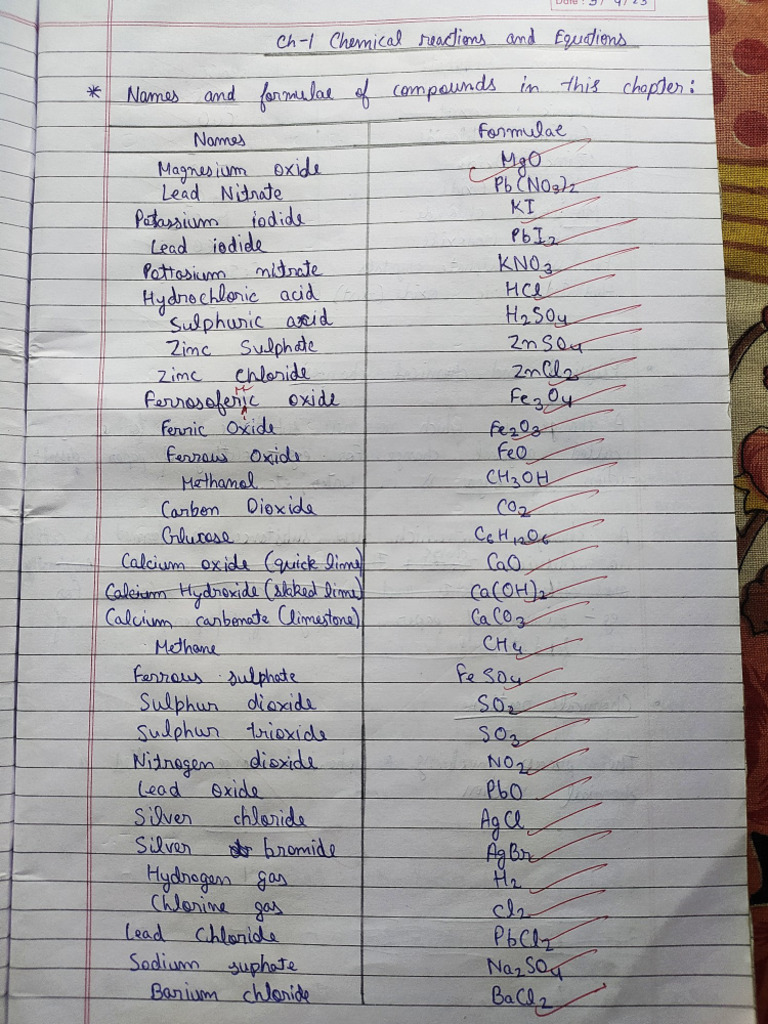 Date : 3/4/23
Ch-1 Chemical reactions and Equations
* Names and formulae of compounds in this chapter:
Names Formulae
Magnesium oxide MgO
Lead Nitrate Pb(NO3)2
Potassium iodide KI
Lead iodide PbI2
Pottasium nitrate KNO3
Hydrochloric acid HCl
Sulphuric acid H2SO4
Zinc Sulphate ZnSO4
Zinc Chloride ZnCl2
Ferrosoferric oxide Fe3O4
Ferric Oxide Fe2O3
Ferrous Oxide FeO
Methanol CH3OH
Carbon Dioxide CO2
Glucose C6H12O6
Calcium oxide (quick lime) CaO
Calcium Hydroxide (slaked lime) Ca(OH)2
Calcium carbonate (limestone) CaCO3
Methane CH4
Ferrous sulphate FeSO4
Sulphur dioxide SO2
Sulphur trioxide SO3
Nitrogen dioxide NO2
Lead oxide PbO
Silver chloride AgCl
Silver bromide AgBr
Hydrogen gas H2
Chlorine gas Cl2
Lead Chloride PbCl2
Sodium suphate Na2SO4
Barium chloride BaCl2